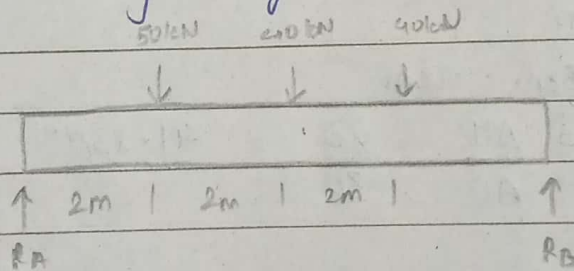 50kN 40kN 40kN
2m 2m 2m
RA RB